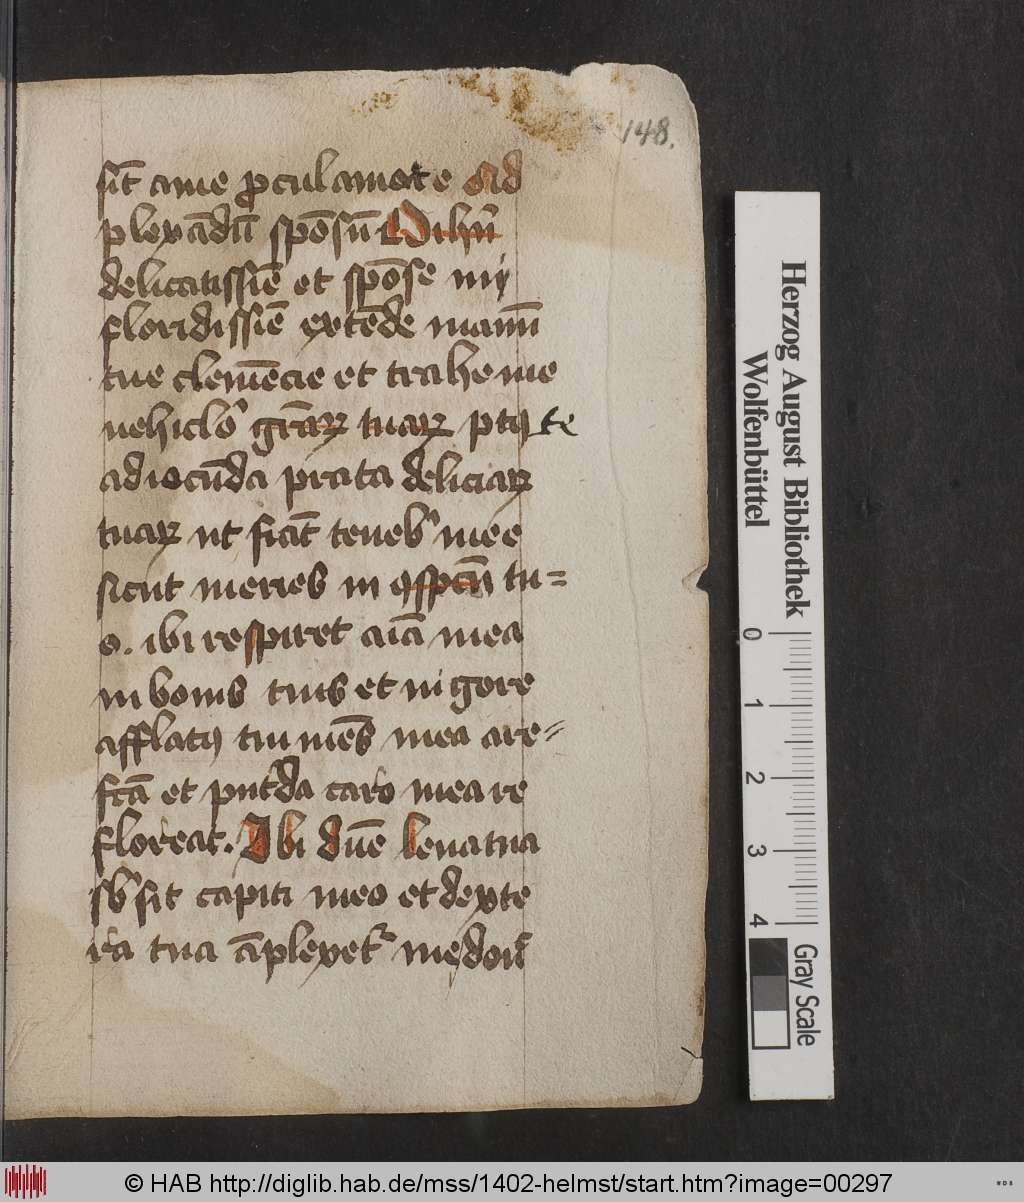 148.
sit aīe ꝓculamore ad
plexādū spōsū O ihū
delicatissīe et spōse mi
floridissīe extēde manū
tue clemēcie et trahe me
vehiclo gr̄aꝝ tuaꝝ te
ad iocūda prata deliciaꝝ
tuaꝝ ut fiāt teneb᷑ mee
sicut meries in ꝯspectu tu=
o. ibi respiret aīa mea
in bonis tuis et vigore
afflatꝰ tui mēs mea are=
fcā et put᷑da caro mea re
floreat. Ibi dn̄e leva tua
sb᷑ sit capiti meo et dexte
ra tua āplexet᷑ me don᷑
Herzog August Bibliothek
Wolfenbüttel
0 1 2 3 4
Gray Scale
© HAB http://diglib.hab.de/mss/1402-helmst/start.htm?image=00297